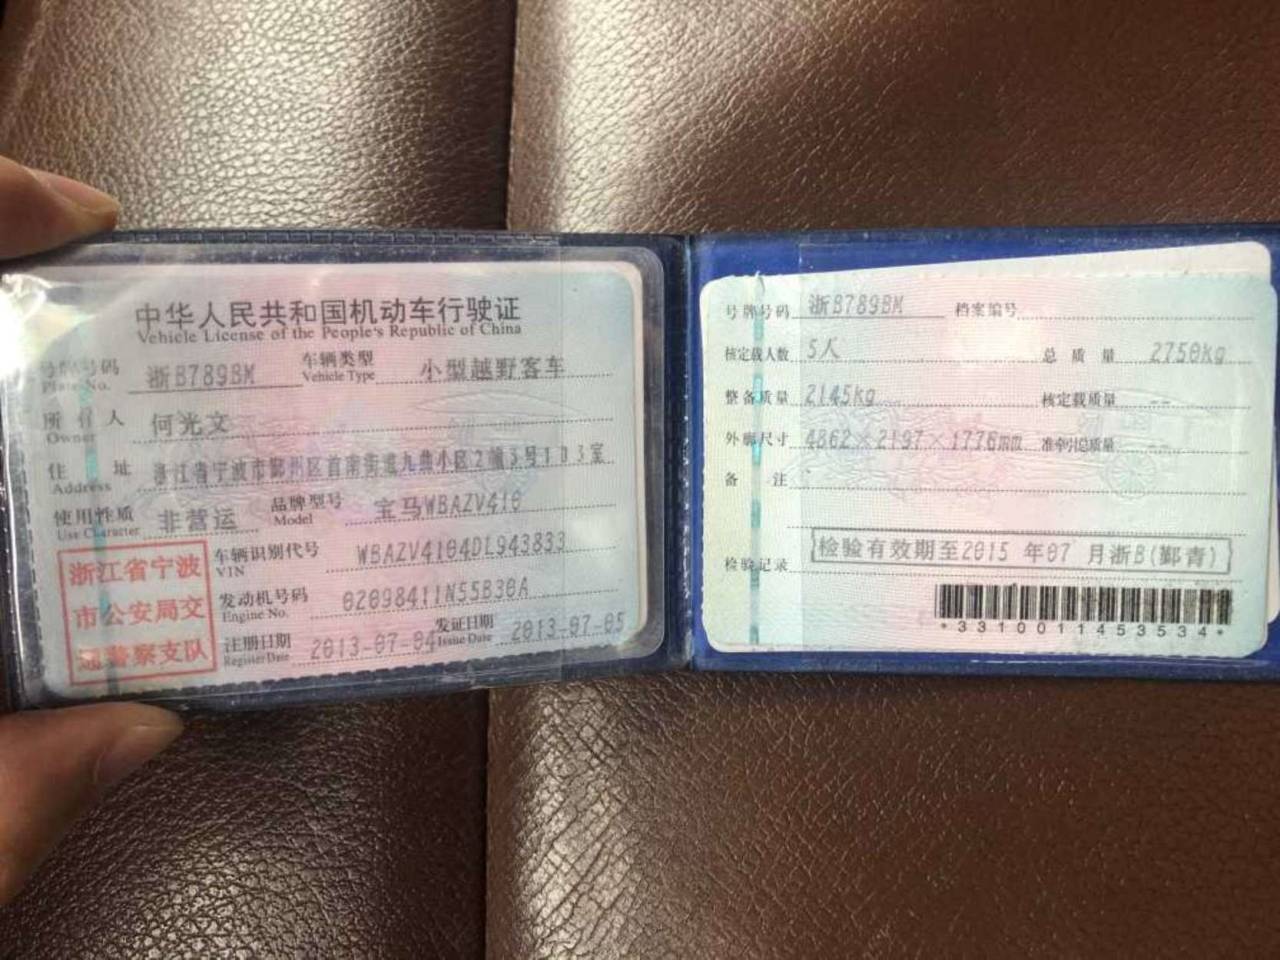 中华人民共和国机动车行驶证
Vehicle License of the People's Republic of China
号牌号码 浙B789BM 车辆类型 小型越野客车
Plate No. Vehicle Type
所有人 何光文
Owner
住址 浙江省宁波市鄞州区首南街道九曲小区2幢3号103室
Address
使用性质 非营运 品牌型号 宝马WBAZV410
Use Character Model
浙江省宁波
市公安局交
通警察支队
车辆识别代号 WBAZV4104DL943833
VIN
发动机号码 02098411N55B30A
Engine No.
注册日期 2013-07-04 发证日期 2013-07-05
Register Date Issue Date
号牌号码 浙B789BM 档案编号
核定载人数 5人 总质量 2750kg
整备质量 2145kg 核定载质量 --
外廓尺寸 4862×2197×1776mm 准牵引总质量 --
备注
检验记录 检验有效期至2015 年07 月浙B(鄞青)
*3310011453534*